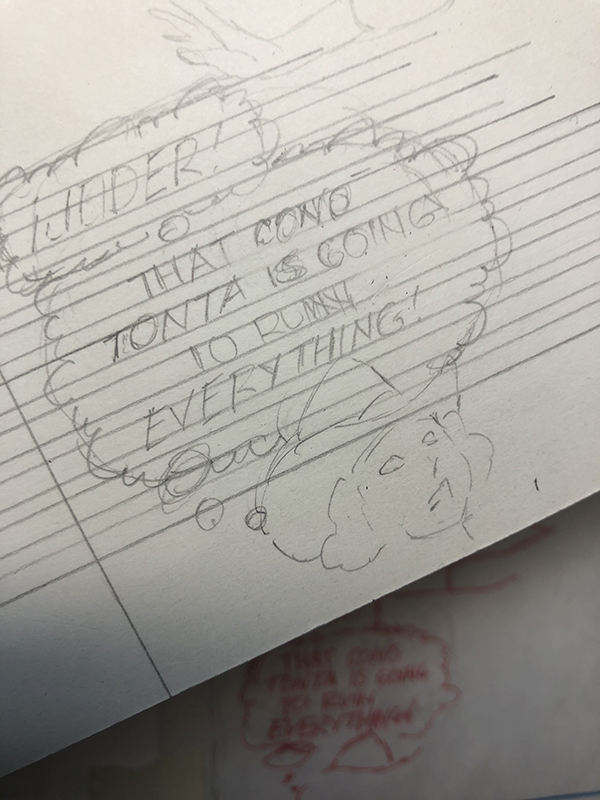 THAT COÑO
TONTA IS GOING
TO RUIN
EVERYTHING!
THAT COÑO
TONTA IS GOING
TO RUIN
EVERYTHING!